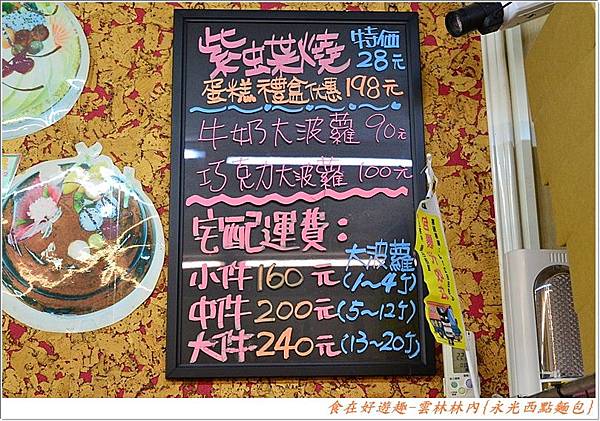 紫蝶燒 特価
28元
蛋糕禮盒优惠 198元
牛奶大波蘿 90元
巧克力大波蘿 100元
宅配運費：
大波蘿
小件160元(1~4个)
中件200元(5~12个)
大件240元(13~20个)
食在好遊趣-雲林林內{永光西點麵包}